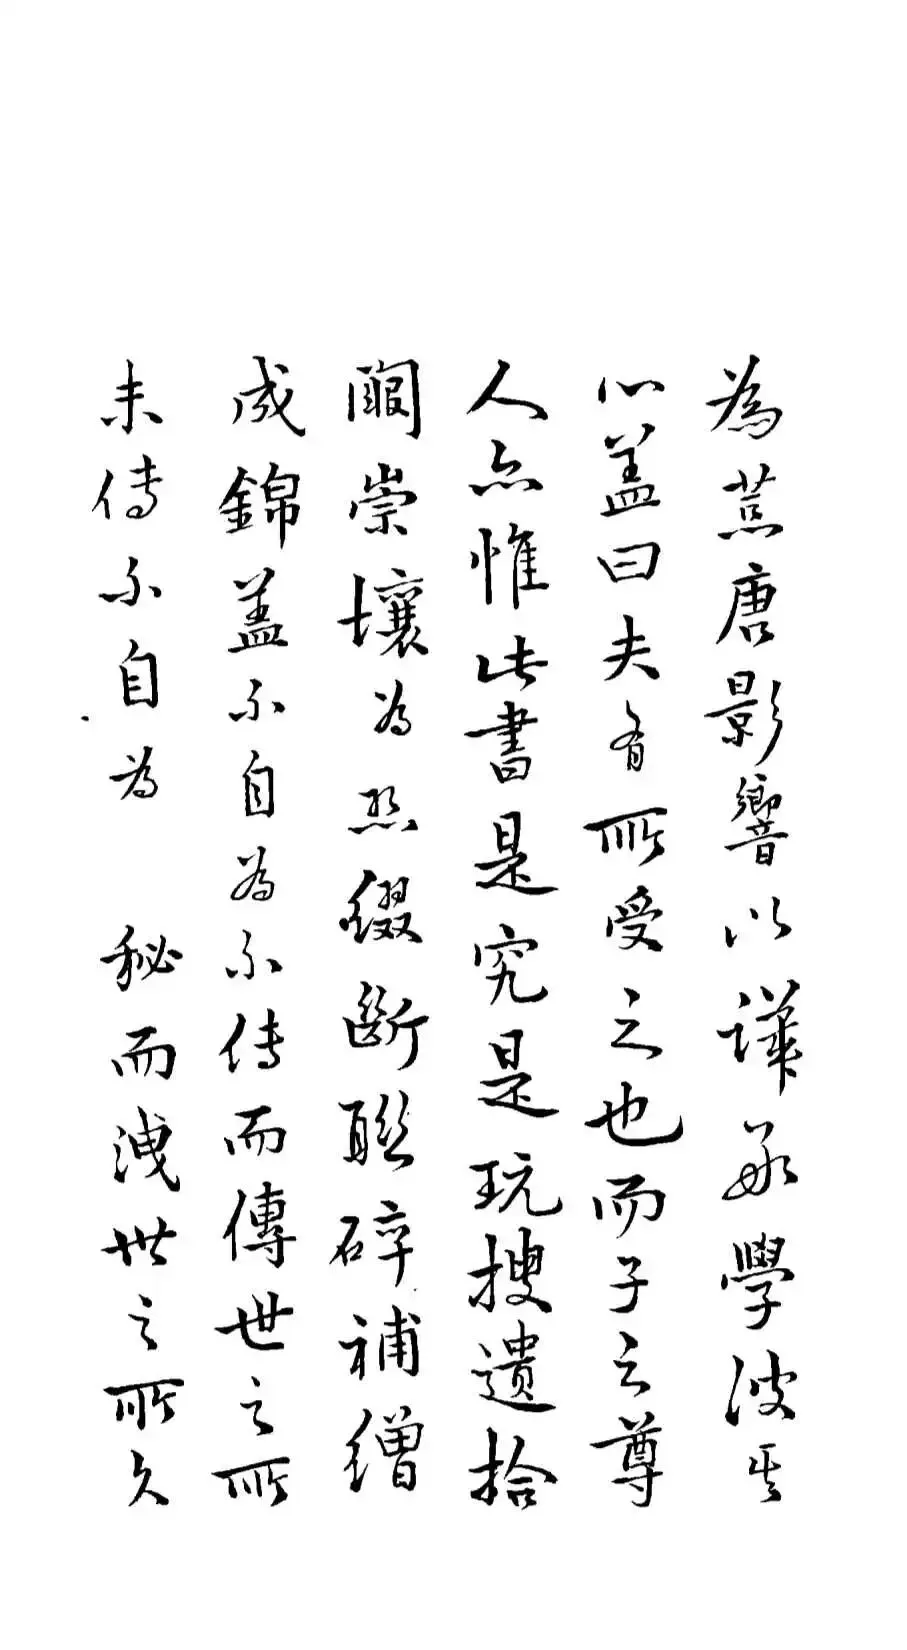 為荒唐影響以譁眾學彼其
心蓋曰夫有所受之也而子之尊
人亦惟此書是究是玩搜遺拾
闕崇壞為照綴斷聯碎補繒
成錦蓋不自為不傳而傳世之所
未傳不自為秘而洩世之所久